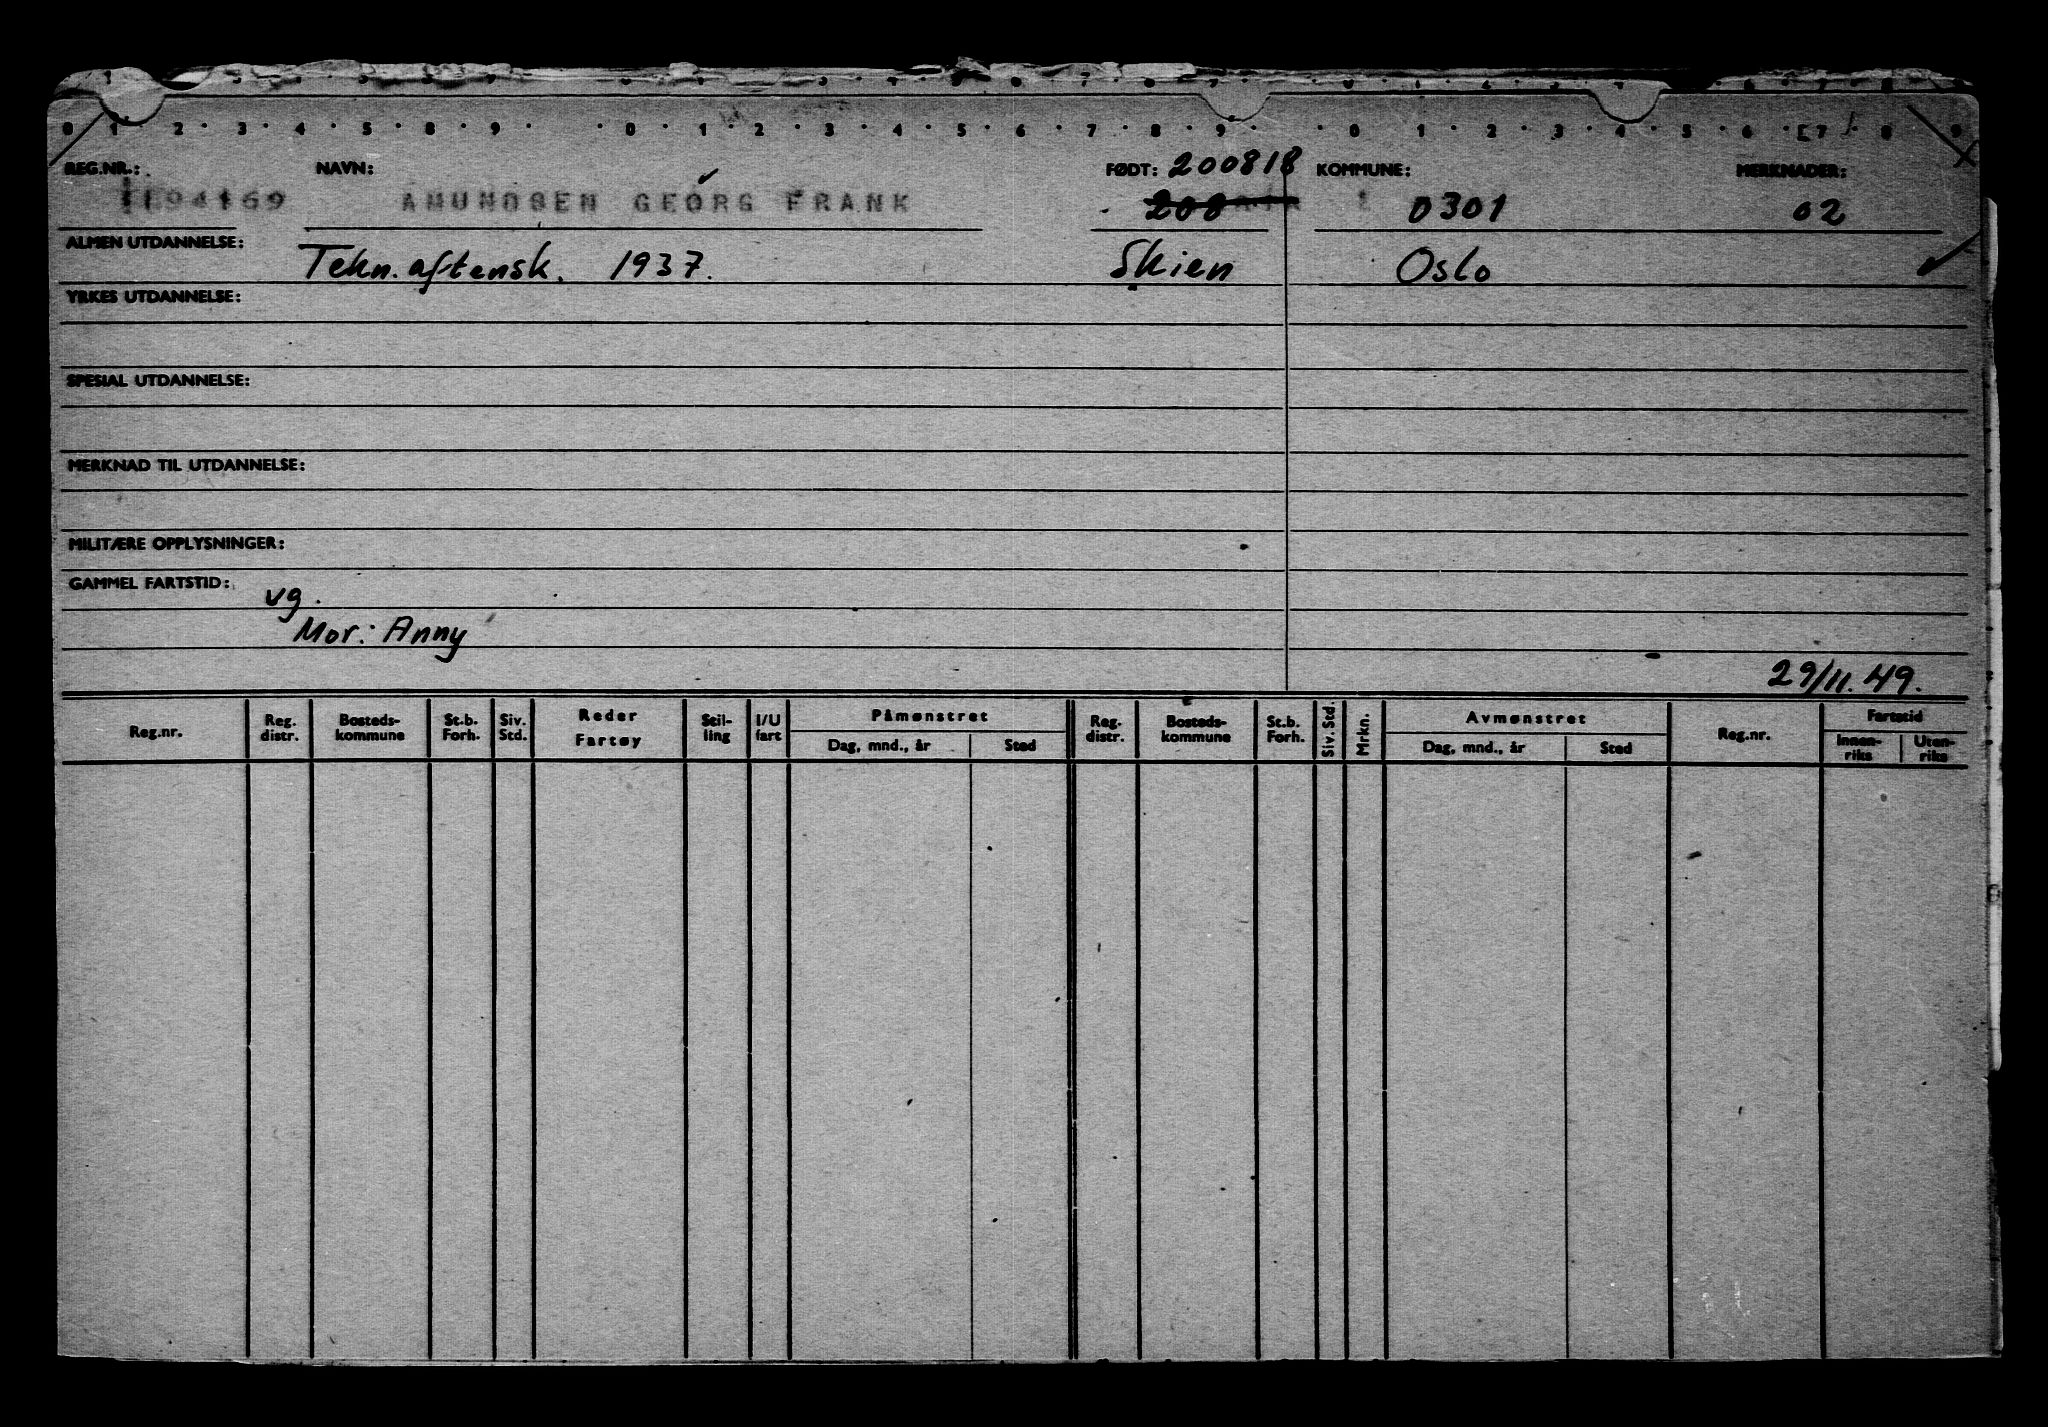 0 1 2 3 4 5 8 9 0 1 2 3 4 5 6 7 8 9 0 1 2 3 4 5 6 7 8 9
REG.NR.: NAVN: FØDT: 200818 KOMMUNE: MERKNADER:
AMUNDSEN GEORG FRANK 208 0301 02
ALMEN UTDANNELSE: Tekn. aftensk. 1937. Skien Oslo
YRKES UTDANNELSE:
SPESIAL UTDANNELSE:
MERKNAD TIL UTDANNELSE:
MILITÆRE OPPLYSNINGER:
GAMMEL FARTSTID: vg.
Mor: Anny
29/11.49.
Reg.nr. Reg. distr. Bosteds-kommune St.b. Forh. Siv. Std. Reder Fartøy Stil-ling I/U fart Påmønstret Dag, mnd., år Sted Reg. distr. Bosteds-kommune St.b. Forh. Siv. Std. Mrkn. Avmønstret Dag, mnd., år Sted Reg.nr. Fartstid Innen-riks Uten-riks